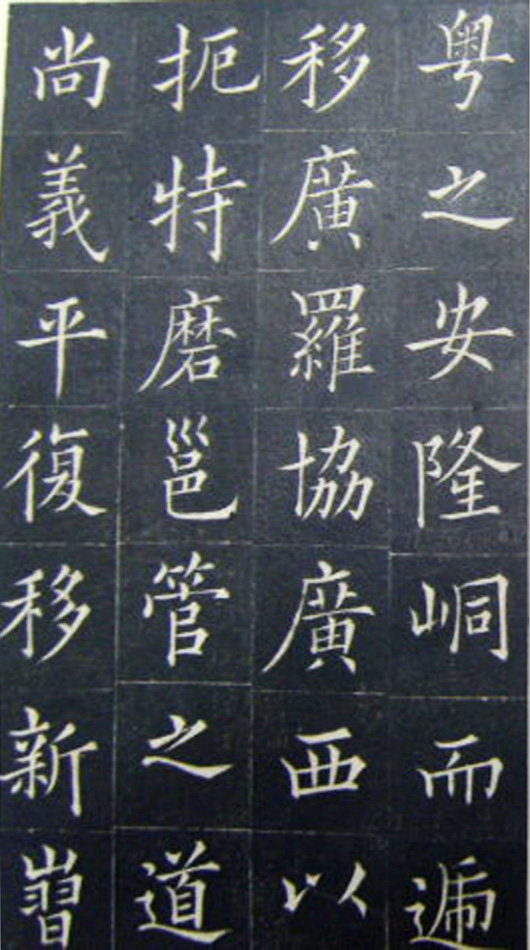 粵之安隆峒而逓
移廣羅協廣西以
扼特磨邕管之道
尚義平復移新嶍